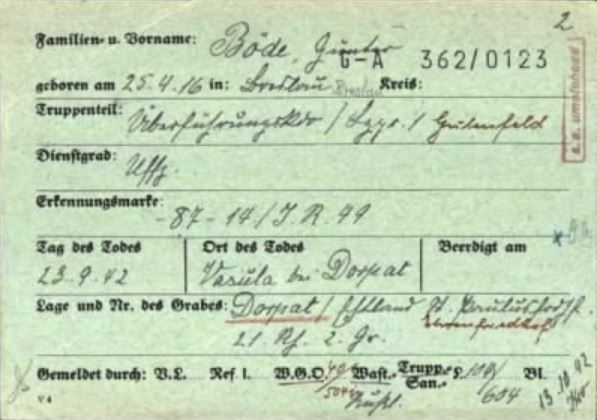 2
Familien- u. Vorname: Böde, Günter
G-A 362/0123
geboren am 25.4.16 in: Breslau Breslau Kreis:
Truppenteil: Überführungskdo / Lg. 1 Gutenfeld
Dienstgrad: Uffz.
Erkennungsmarke: -87-14/J.R.49
Tag des Todes Ort des Todes Beerdigt am
23.9.42 Vasula bei Dorpat
Lage und Nr. des Grabes: Dorpat / Estland St. Paulusfrdhf.
Ehrenfriedhof
21 Rh. 2. Gr.
Gemeldet durch: V.L. Ref I. W.G.O. Wast.- Trupp.- San.- Bl.
604 13.10.42
V 4